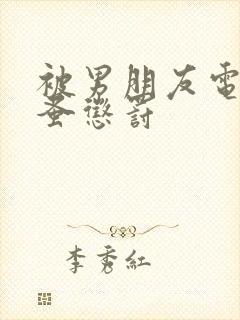 被男朋友電
蚤懲罰
李秀紅